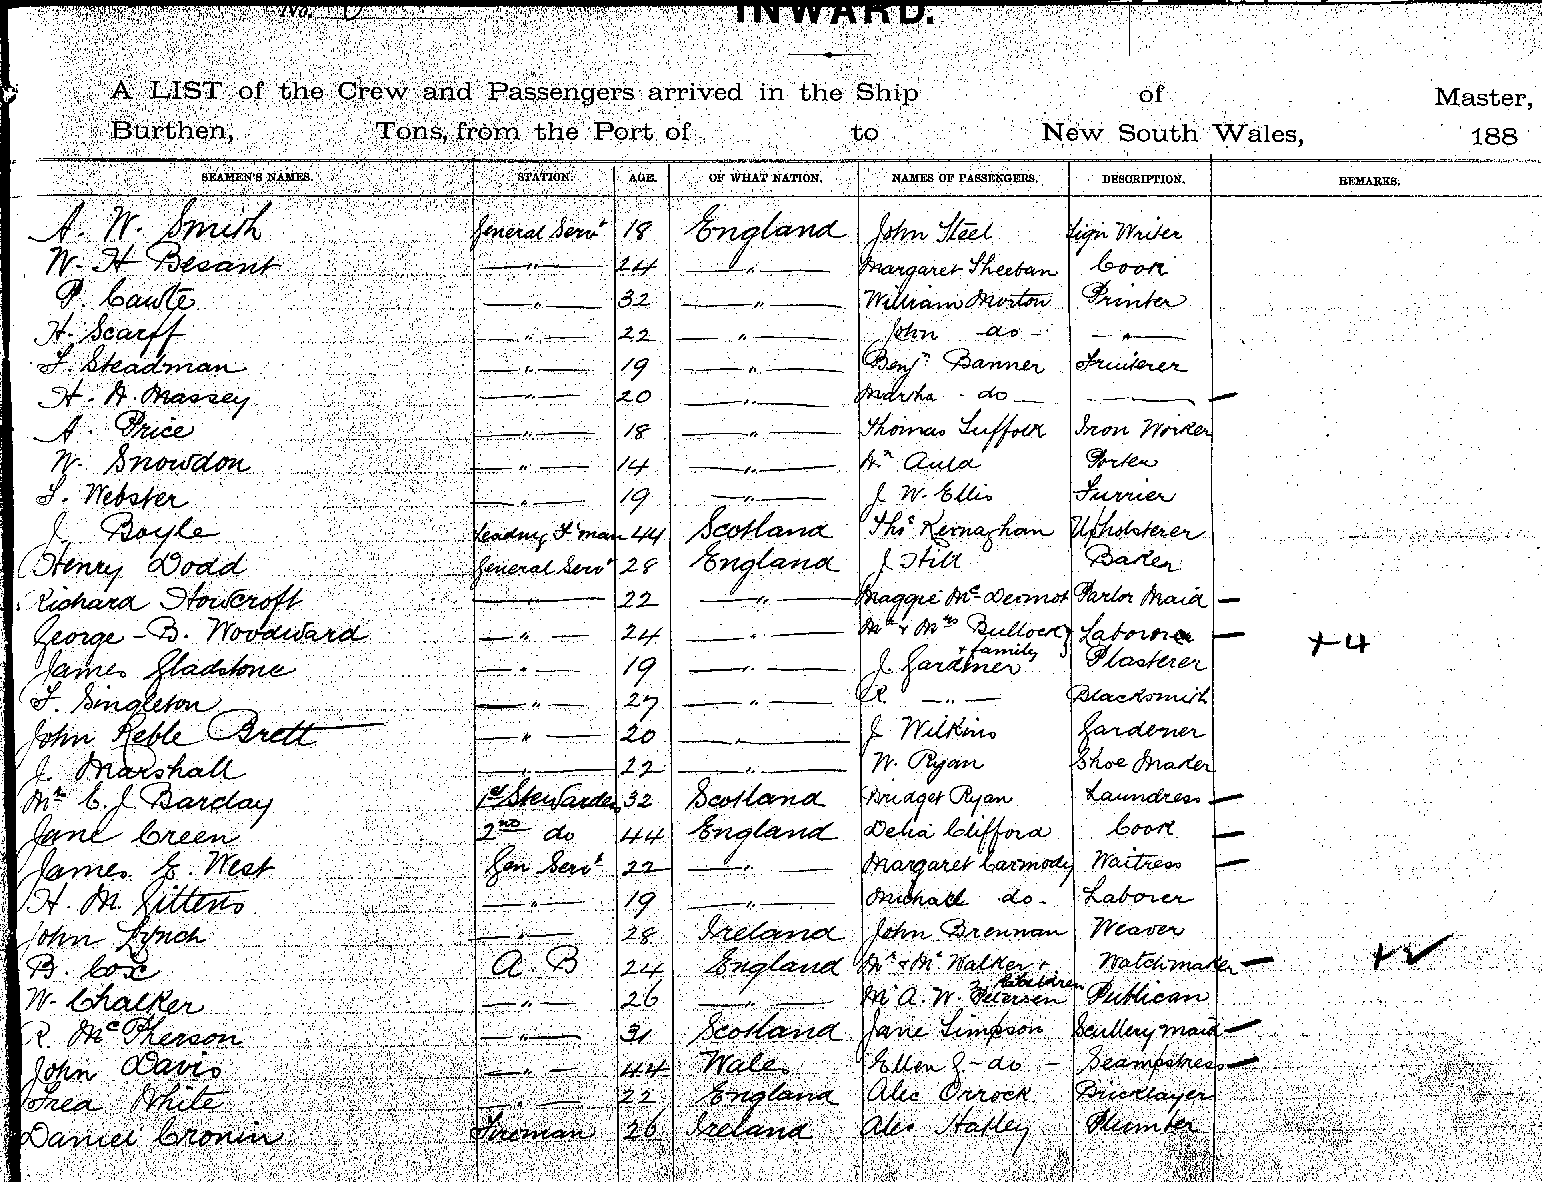 No.
INWARD.
A LIST of the Crew and Passengers arrived in the Ship of Master,
Burthen, Tons, from the Port of to New South Wales, 188
SEAMEN'S NAMES. STATION. AGE. OF WHAT NATION. NAMES OF PASSENGERS. DESCRIPTION. REMARKS.
A. W. Smith General Servt 18 England John Steel Sign Writer
W. H Besant — " — 24 — " — Margaret Sheehan Cook
P. Cawte — " — 32 — " — William Morton Printer
H. Scarff — " — 22 — " — John - do - — " —
F. Steadman — " — 19 — " — Benjn Banner Fruiterer
H. A. Massey — " — 20 — " — Martha - do — — —
A. Price — " — 18 — " — Thomas Suffolk Iron Worker
W. Snowdon — " — 14 — " — Wm Auld Porter
F. Webster — " — 19 — " — J. W. Ellis Furrier
J. Boyle Leading F'man 44 Scotland Thos Kernaghan Upholsterer
Henry Dodd General Servt 28 England J Hill Baker
Richard Howcroft — " — 22 — " — Maggie McDermot Parlor Maid —
George B. Woodward — " — 24 — " — Mr & Mrs Bullock } Laborer — +4
& family
James Gladstone — " — 19 — " — J. Gardiner Plasterer
F. Singleton — " — 27 — " — R. — " — Blacksmith
John Keble Brett — " — 20 — " — J Wilkins Gardener
J. Marshall — " — 22 — " — W. Ryan Shoe Maker
Mrs C. J. Barclay 1st Stewardess 32 Scotland Bridget Ryan Laundress —
Jane Green 2nd do 44 England Delia Clifford Cook —
James E. West Gen Servt 22 — " — Margaret Carmody Waitress —
H. M. Gittens — " — 19 — " — Michael do - Laborer
John Lynch — " — 28 Ireland John Brennan Weaver
B. Cox A. B 24 England Mr & Mrs Walker & Watchmaker — +2
2 children
W. Chalker — " — 26 — " — Mr A. W. Petersen Publican
R. McPherson — " — 31 Scotland Jane Simpson Scullery maid —
John Davis — " — 44 Wales Ellen J - do - Seampstress —
Fred White — " — 22 England Alec Orrock Bricklayer
Daniel Cronin Fireman 26 Ireland Alex Hatley Plumber